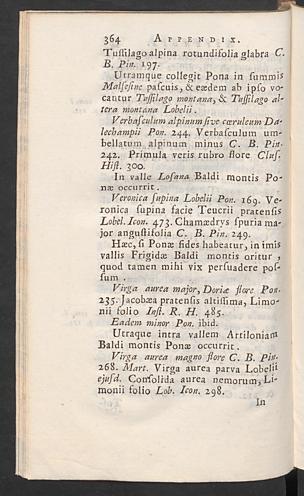 364 APPENDIX.
Tuſſilago alpina rotundifolia glabra C.
B. Pin. 197.
Utramque collegit Pona in ſummis
Malſeſinæ paſcuis, & eædem ab ipſo vo-
cantur Tuſſilago montana, & Tuſſilago al-
tera montana Lobelii.
Verbaſculum alpinum ſive cæruleum Da-
lechampii Pon. 244. Verbaſculum um-
bellatum alpinum minus C. B. Pin.
242. Primula veris rubro flore Cluſ.
Hiſt. 300.
In valle Loſana Baldi montis Po-
næ occurrit.
Veronica ſupina Lobelii Pon. 169. Ve-
ronica ſupina facie Teucrii pratenſis
Lobel. Icon. 473. Chamædrys ſpuria ma-
jor anguſtifolia C. B. Pin. 249.
Hæc, ſi Ponæ fides habeatur, in imis
vallis Frigidæ Baldi montis oritur,
quod tamen mihi vix perſuadere poſ-
ſum.
Virga aurea major, Doriæ flore Pon.
235. Jacobæa pratenſis altiſſima, Limo-
nii folio Inſt. R. H. 485.
Eadem minor Pon. ibid.
Utraque intra vallem Artiloniam
Baldi montis Ponæ occurrit.
Virga aurea magno flore C. B. Pin.
268. Mart. Virga aurea parva Lobelii
ejuſd. Conſolida aurea nemorum, Li-
monii folio Lob. Icon. 298.
In